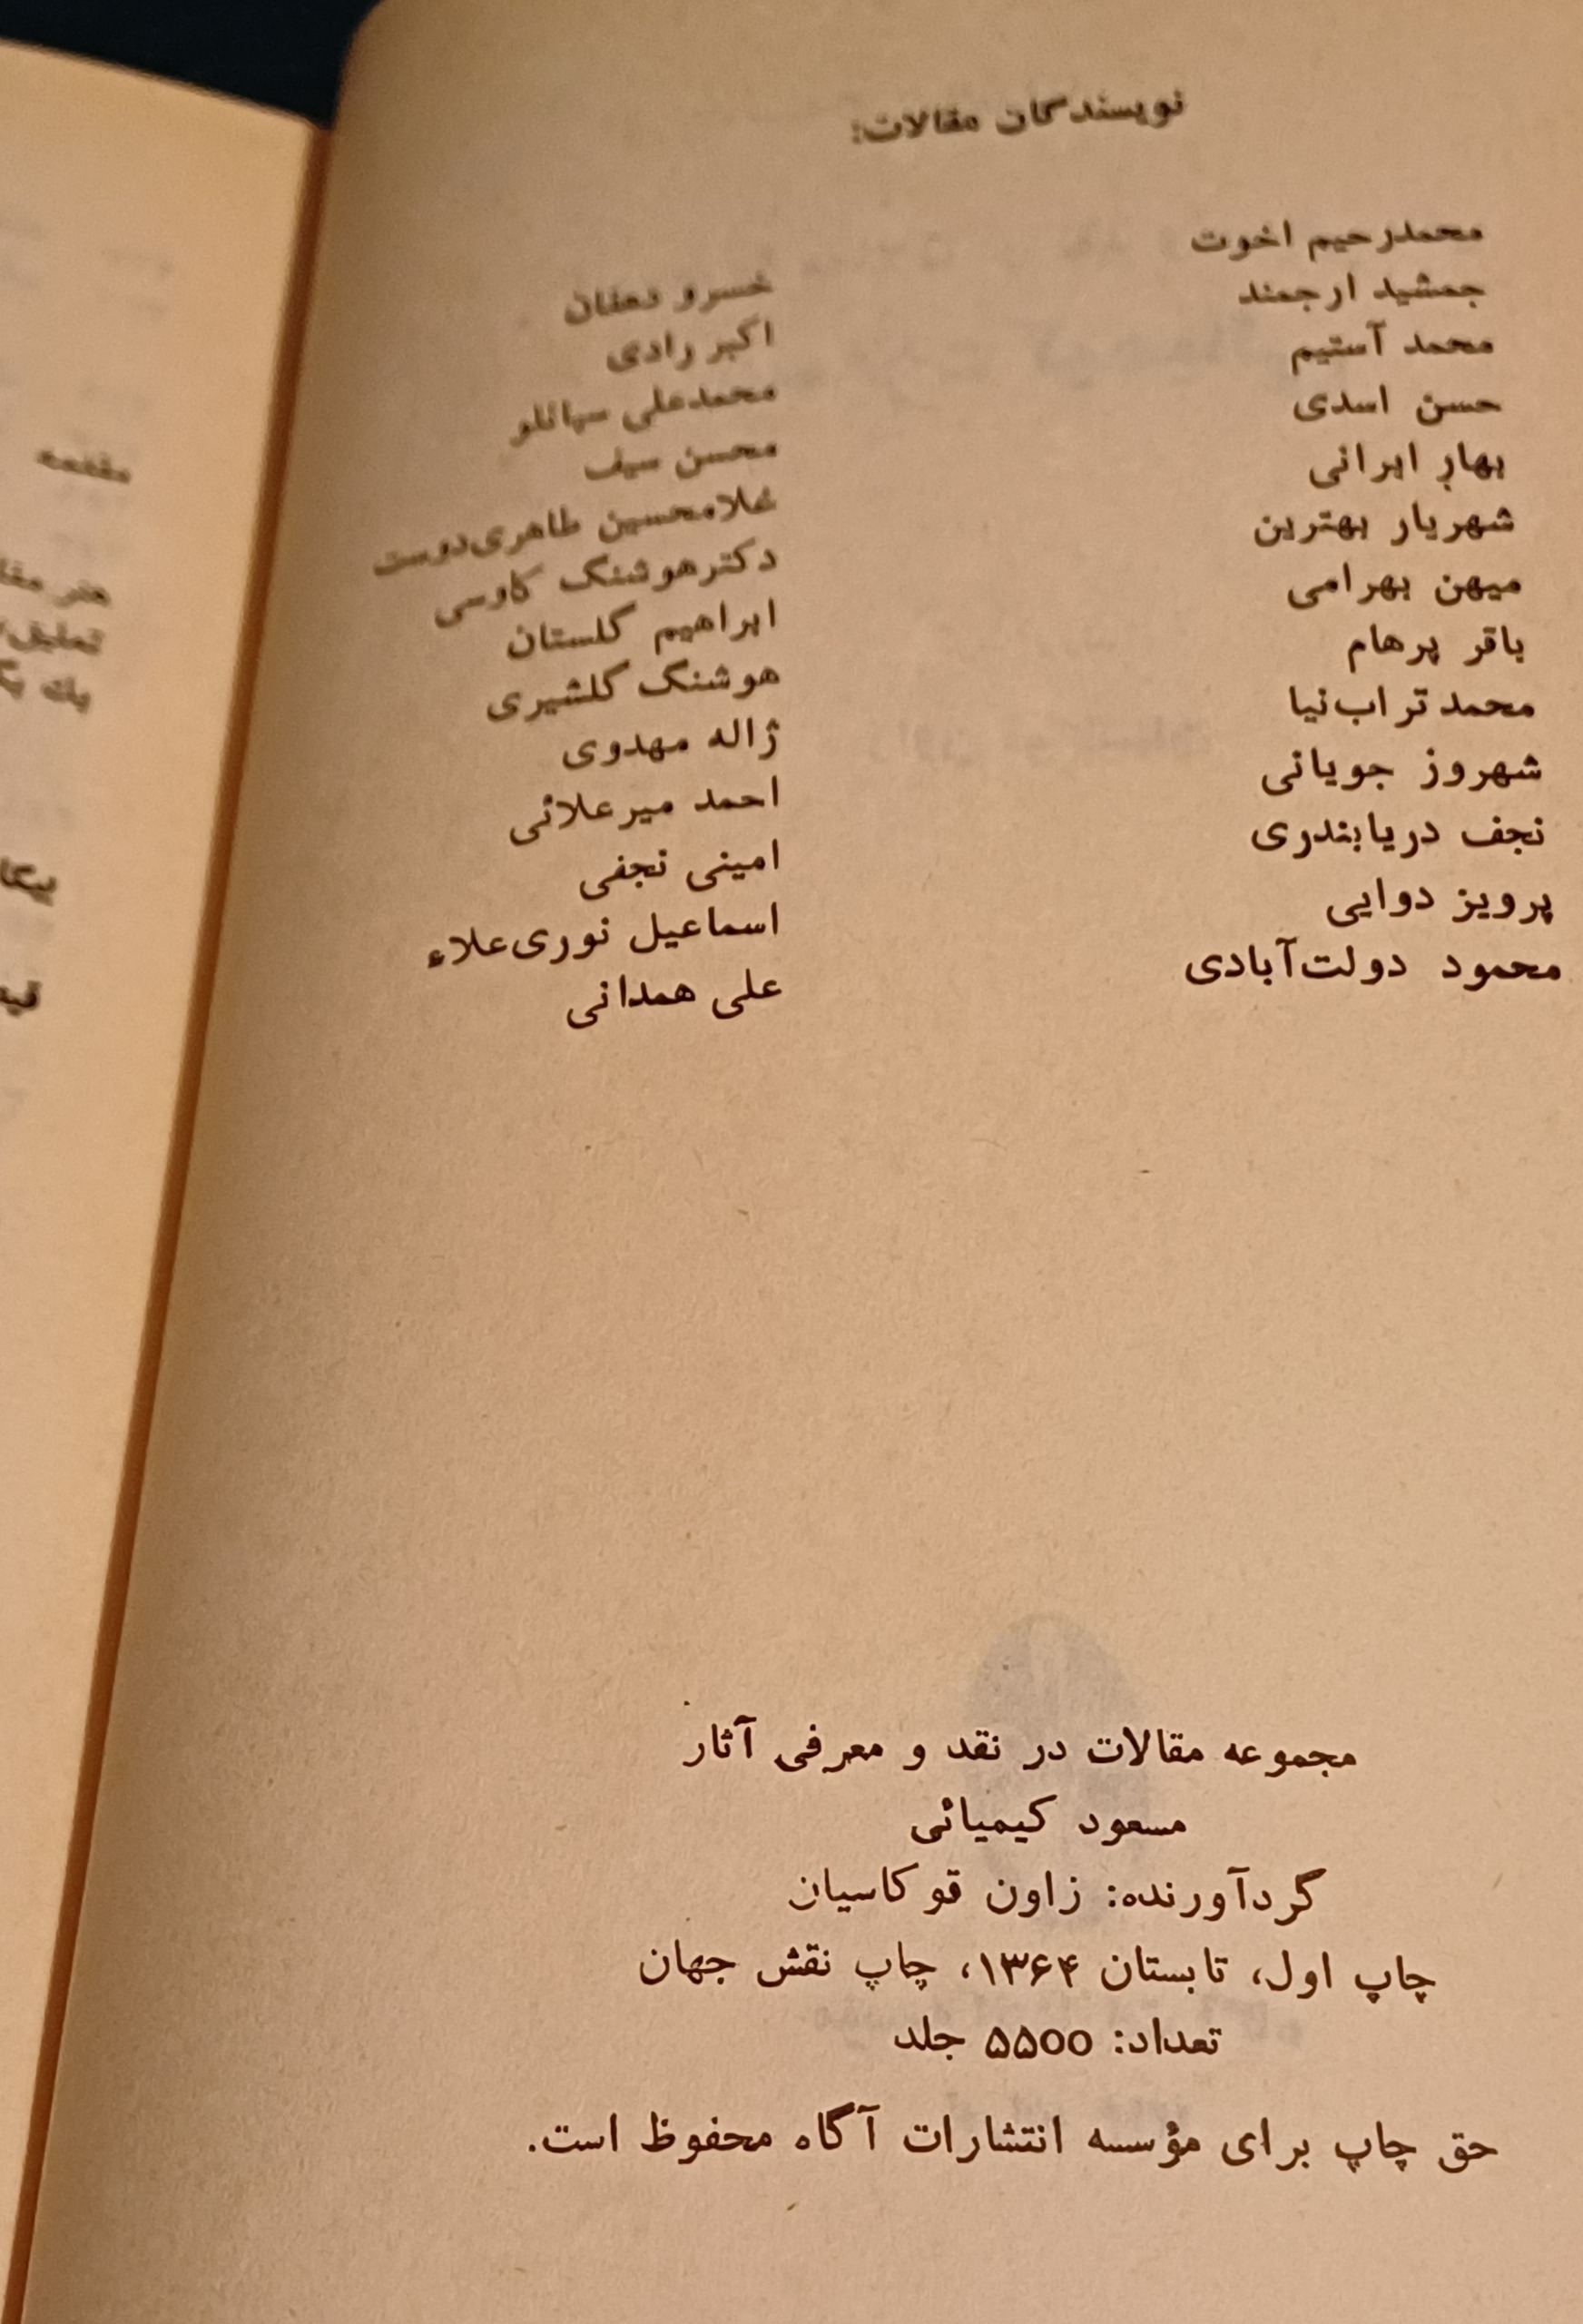 نویسندگان مقالات:
محمدرحیم اخوت
جمشید ارجمند
محمد آستیم
حسن اسدی
بهار ایرانی
شهریار بهترین
میهن بهرامی
باقر پرهام
محمد تراب‌نیا
شهروز جویانی
نجف دریابندری
پرویز دوایی
محمود دولت‌آبادی
خسرو دهقان
اکبر رادی
محمدعلی سپانلو
محسن سیف
غلامحسین طاهری‌دوست
دکترهوشنگ کاوسی
ابراهیم گلستان
هوشنگ گلشیری
ژاله مهدوی
احمد میرعلائی
امینی نجفی
اسماعیل نوری‌علاء
علی همدانی
مجموعه مقالات در نقد و معرفی آثار
مسعود کیمیائی
گردآورنده: زاون قوکاسیان
چاپ اول، تابستان ۱۳۶۴، چاپ نقش جهان
تعداد: ۵۵۰۰ جلد
حق چاپ برای مؤسسه انتشارات آگاه محفوظ است.
مقدمه